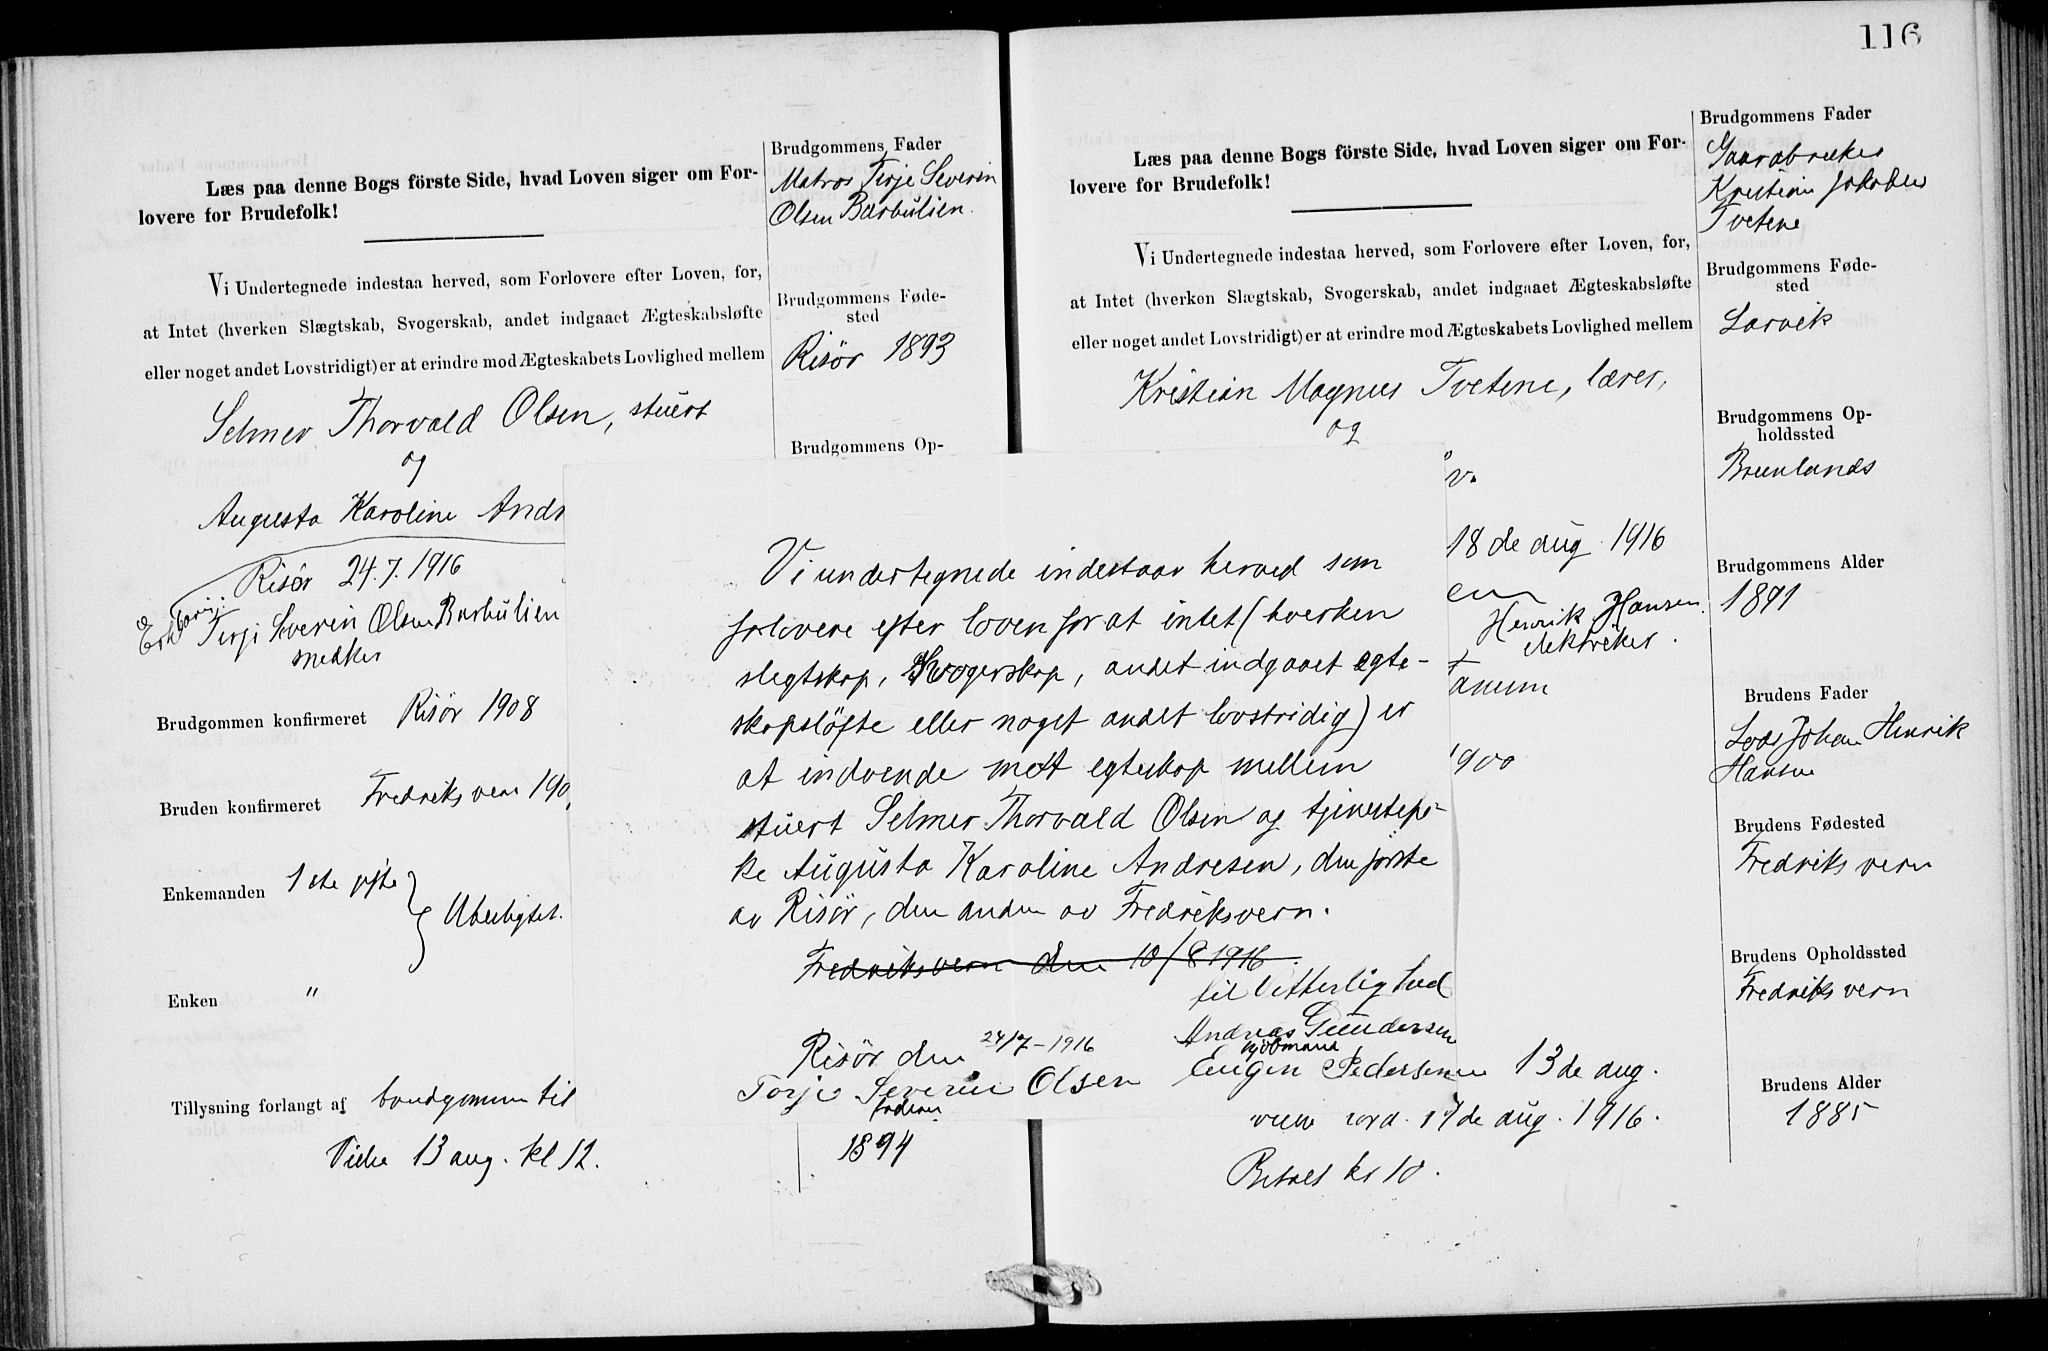 Læs paa denne Bogs förste Side, hvad Loven siger om For-
lovere for Brudefolk!
Vi Undertegnede indestaa herved, som Forlovere efter Loven, for,
at Intet (hverken Slægtskab, Svogerskab, andet indgaaet Ægteskabsløfte
eller noget andet Lovstridigt) er at erindre mod Ægteskabets Lovlighed mellem
Selmer Thorvald Olsen, stuert
og
Augusta Karoline Andr
Risör 24.7.1916
Terji Severin Olsen Barbulien
snedker
Brudgommen konfirmeret Risör 1908
Bruden konfirmeret Fredriksvern 190
Enkemanden 1ste gifte
Uberligtet.
Enken "
Tillysning forlangt af brudgommen til
Vielse 13 aug. kl 12.
Brudgommens Fader
Matros Terje Severin
Olsen Barbulien.
Brudgommens Føde-
sted
Risör 1893
Brudgommens Op-
1894
Vi undertegnede indestaar herved som
forlovere efter loven for at intet (hverken
slegtskap, Svogerskap, andet indgaaet egte-
skapsløfte eller noget andet lovstridig) er
at indvende mot egteskap mellem
stuert Selmer Thorvald Olsen og tjenestepi-
ke Augusta Karoline Andresen, den første
av Risör, den anden av Fredriksvern.
Fredriksvern den 10/8 1916.
til Vitterlighed
Andreas Gundersen
kjöbmand
Eugen Pedersen
Risör den 24/7-1916
Torje Severin Olsen
116
Læs paa denne Bogs förste Side, hvad Loven siger om For-
lovere for Brudefolk!
Vi Undertegnede indestaa herved, som Forlovere efter Loven, for,
at Intet (hverken Slægtskab, Svogerskab, andet indgaaet Ægteskabsløfte
eller noget andet Lovstridigt) er at erindre mod Ægteskabets Lovlighed mellem
Kristian Magnus Tvetene, lærer,
og
18de aug. 1916
Henrik Hansen
elektriker.
anum
1900
13de aug.
17de aug. 1916.
Betalt kr 10.
Brudgommens Fader
Gaardbruker
Kristian Jakobsen
Tvetene
Brudgommens Føde-
sted
Larvik
Brudgommens Op-
holdssted
Brunlanes
Brudgommens Alder
1891
Brudens Fader
Lods Johan Henrik
Hansen
Brudens Fødested
Fredriksvern
Brudens Opholdssted
Fredriksvern
Brudens Alder
1885